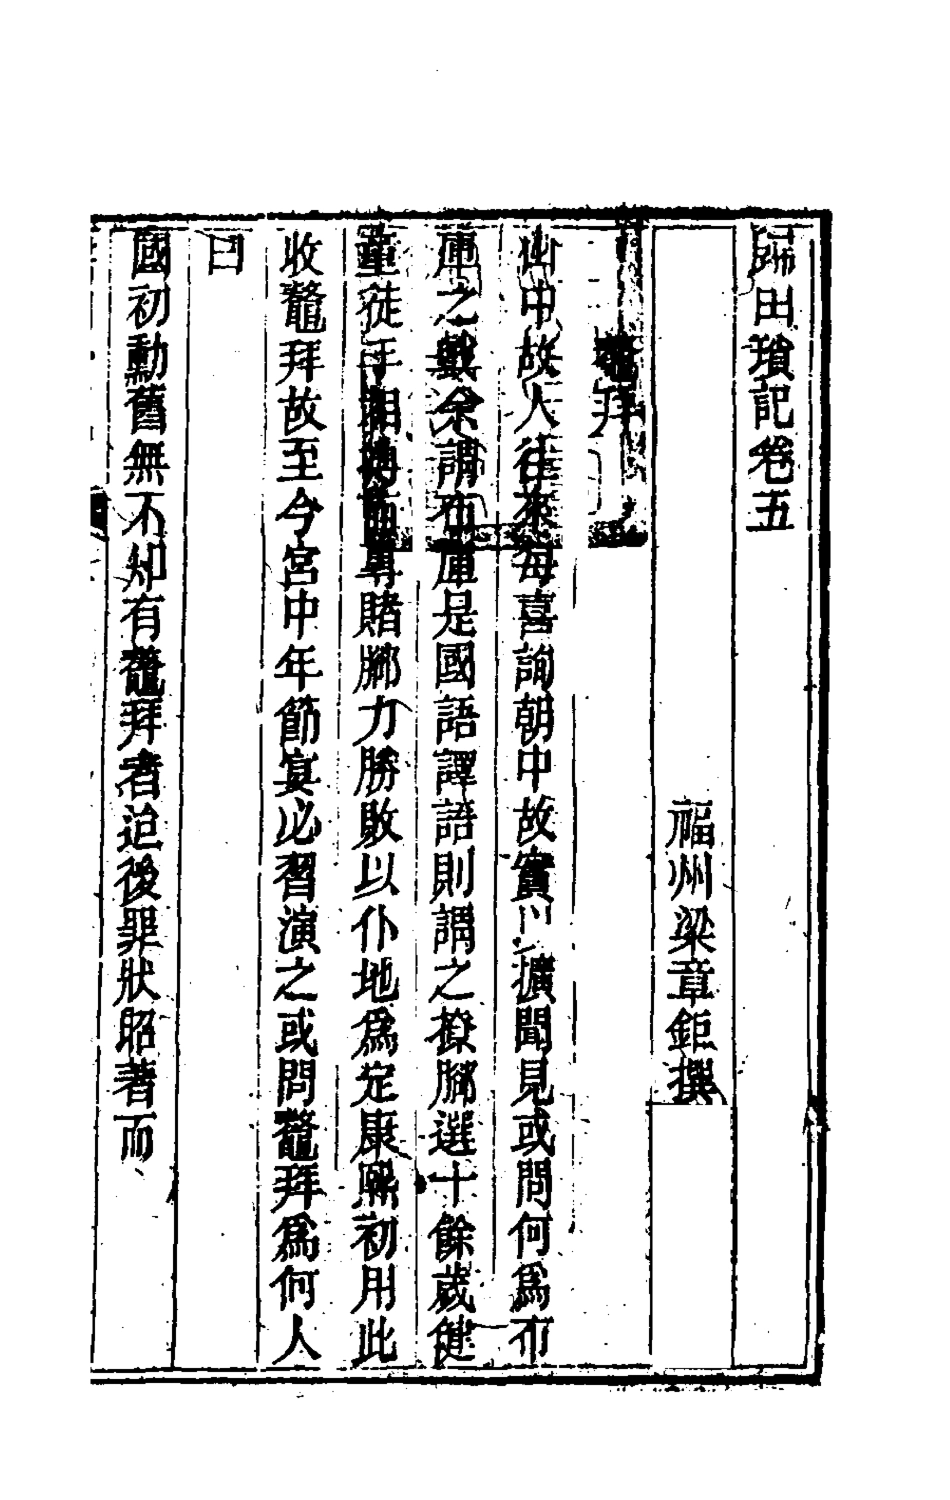 歸田瑣記卷五
福州梁章鉅撰
鼇拜
山中故人往來每喜詢朝中故實以擴聞見或問何為布
庫之戲余謂布庫是國語譯語則謂之撩腳選十餘歲健
童徒手相搏而專賭腳力勝敗以仆地為定康熙初用此
收鼇拜故至今宮中年節宴必習演之或問鼇拜為何人
曰
國初勳舊無不知有鼇拜者迨後罪狀昭著而